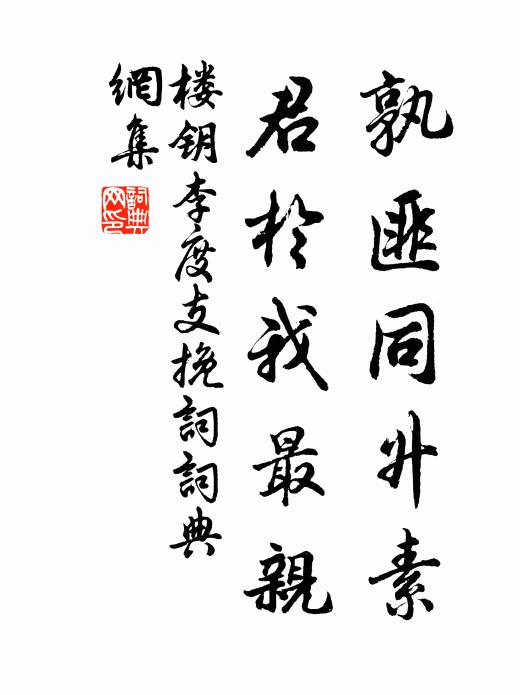 孰匪同升素
君於我最親
楼钥李度支挽詞詞典
網集
詞典网印